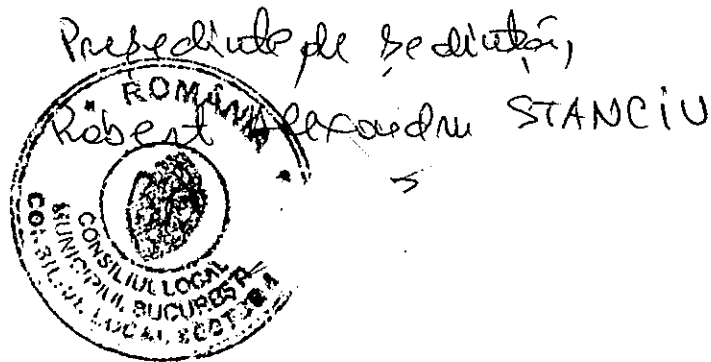 Președinte de ședință,
Robert Alexandru STANCIU
ROMÂNIA
CONSILIUL LOCAL
MUNICIPIUL BUCUREȘTI
CONSILIUL LOCAL SECTOR